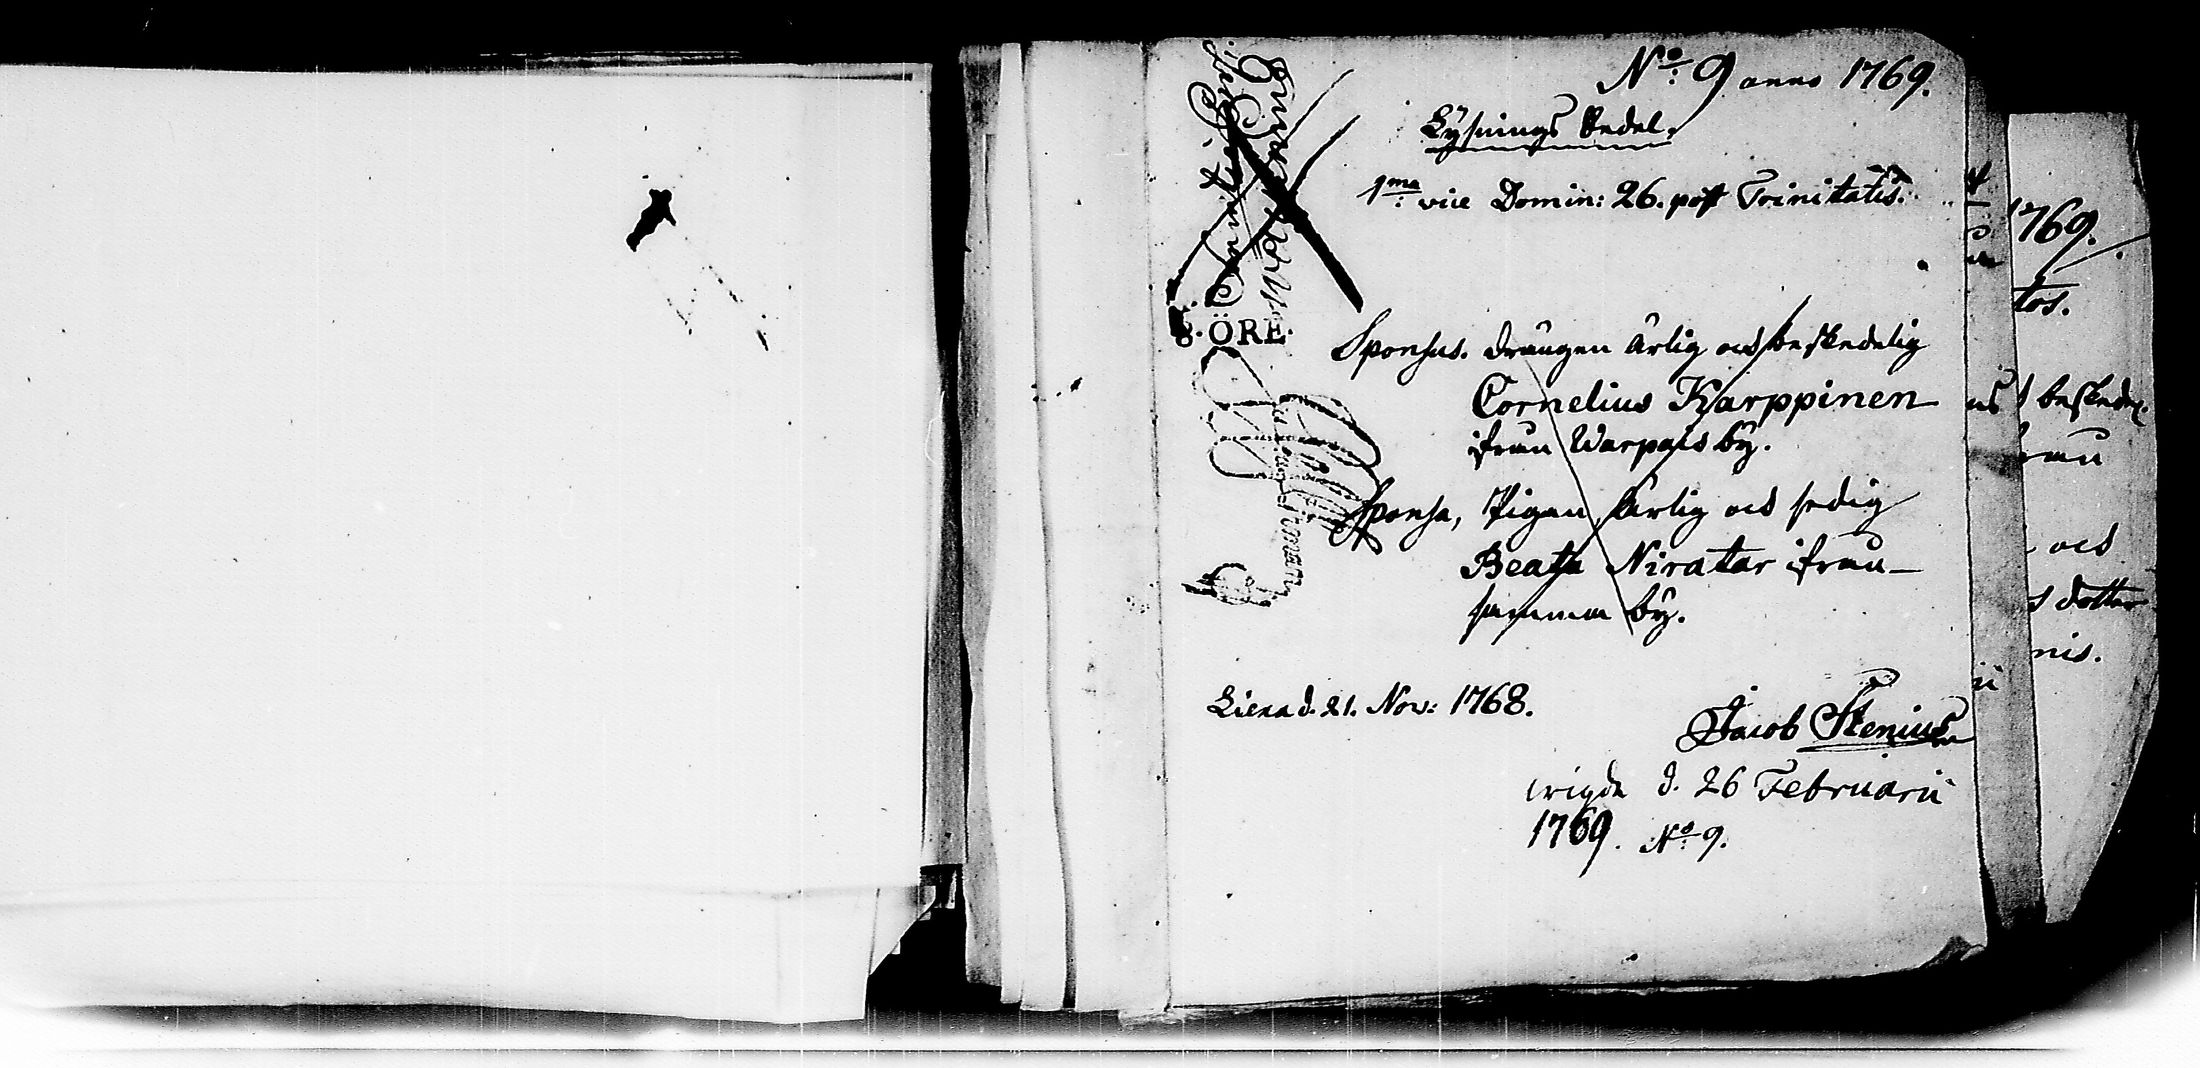 No 9 anno 1769.
Lysnings Sedel.
1ma vice Domin: 26. post Trinitatis.
8. ÖRE.
Sponsus. drängen ärlig och beskedelig
Cornelius Karppinen
ifrån Warpais by.
Sponsa, Pigan ärlig och sedig
Beata Niratar ifrån
samma by.
Liexa d. 21. Nov: 1768.
Jacob Stenius
wigde d. 26 Februarii
1769. No 9.
1769.
tos.
beskedel.
och
s dotter
nis.